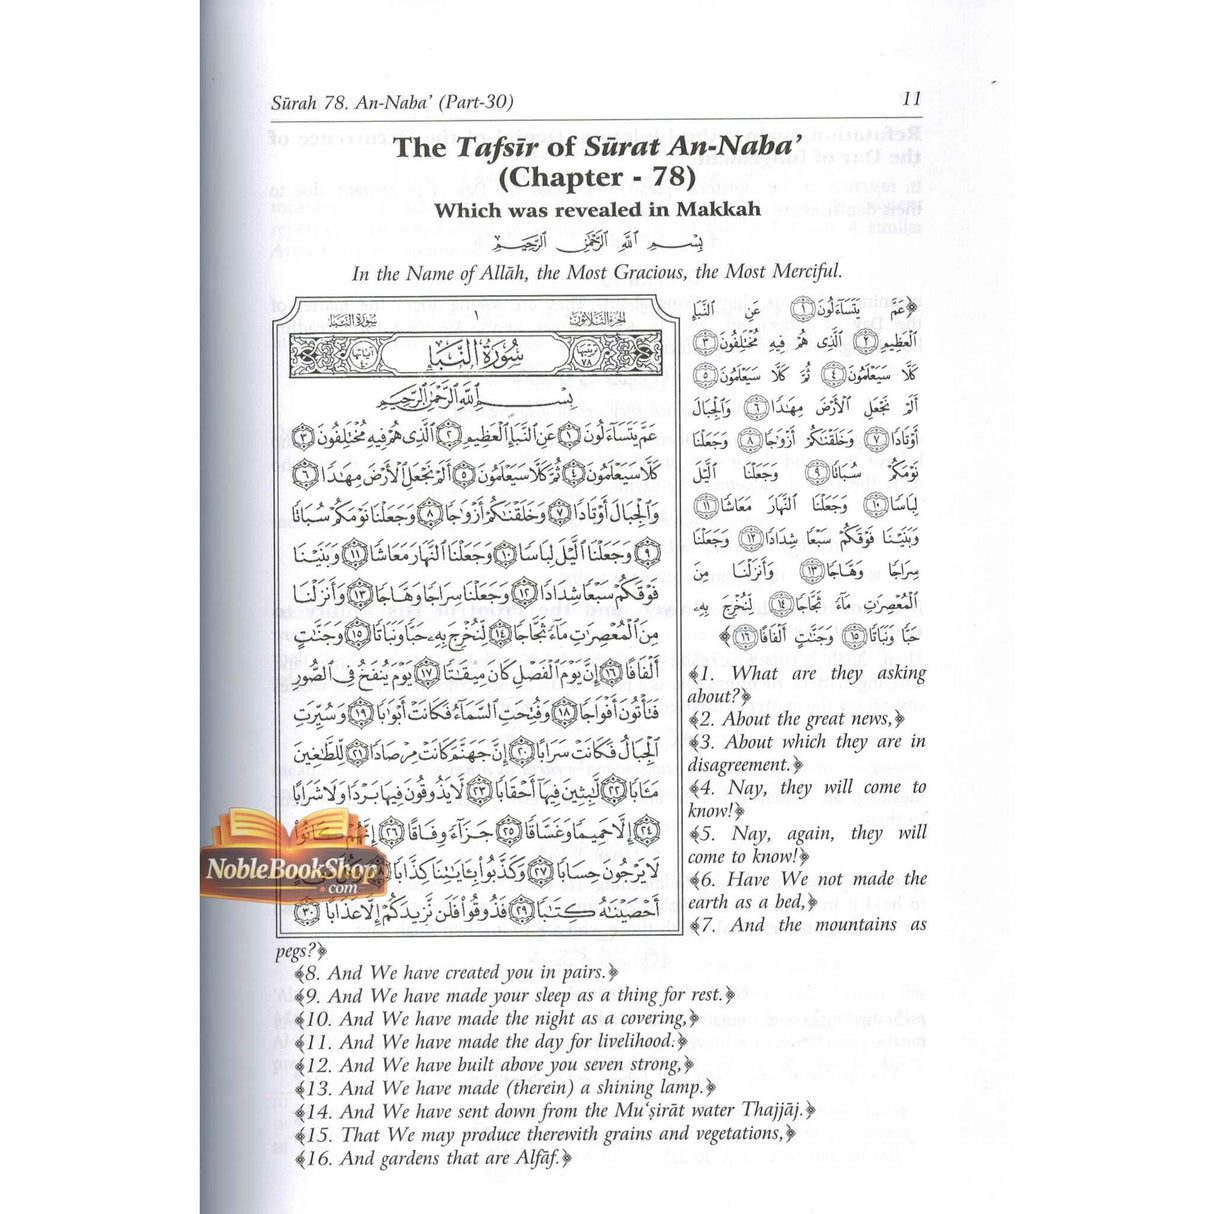 Sūrah 78. An-Naba’ (Part-30) 11
The Tafsīr of Sūrat An-Naba’
(Chapter - 78)
Which was revealed in Makkah
بِسْمِ اللَّهِ الرَّحْمَٰنِ الرَّحِيمِ
In the Name of Allāh, the Most Gracious, the Most Merciful.
سُورَةُ النَّبَإِ ١ الجزء الثلاثون
آياتها ٤٠ سُورَةُ النَّبَإِ ترتيبها ٧٨
بِسْمِ اللَّهِ الرَّحْمَٰنِ الرَّحِيمِ
عَمَّ يَتَسَآءَلُونَ ١ عَنِ النَّبَإِ الْعَظِيمِ ٢ الَّذِى هُمْ فِيهِ مُخْتَلِفُونَ ٣
كَلَّا سَيَعْلَمُونَ ٤ ثُمَّ كَلَّا سَيَعْلَمُونَ ٥ أَلَمْ نَجْعَلِ الْأَرْضَ مِهَٰدًا ٦
وَالْجِبَالَ أَوْتَادًا ٧ وَخَلَقْنَٰكُمْ أَزْوَٰجًا ٨ وَجَعَلْنَا نَوْمَكُمْ سُبَاتًا
٩ وَجَعَلْنَا الَّيْلَ لِبَاسًا ١٠ وَجَعَلْنَا النَّهَارَ مَعَاشًا ١١ وَبَنَيْنَا
فَوْقَكُمْ سَبْعًا شِدَادًا ١٢ وَجَعَلْنَا سِرَاجًا وَهَّاجًا ١٣ وَأَنزَلْنَا
مِنَ الْمُعْصِرَٰتِ مَآءً ثَجَّاجًا ١٤ لِّنُخْرِجَ بِهِۦ حَبًّا وَنَبَاتًا ١٥ وَجَنَّٰتٍ
أَلْفَافًا ١٦ إِنَّ يَوْمَ الْفَصْلِ كَانَ مِيقَٰتًا ١٧ يَوْمَ يُنفَخُ فِى الصُّورِ
فَتَأْتُونَ أَفْوَاجًا ١٨ وَفُتِحَتِ السَّمَآءُ فَكَانَتْ أَبْوَٰبًا ١٩ وَسُيِّرَتِ
الْجِبَالُ فَكَانَتْ سَرَابًا ٢٠ إِنَّ جَهَنَّمَ كَانَتْ مِرْصَادًا ٢١ لِّلطَّٰغِينَ
مَـَٔابًا ٢٢ لَّٰبِثِينَ فِيهَآ أَحْقَابًا ٢٣ لَّا يَذُوقُونَ فِيهَا بَرْدًا وَلَا شَرَابًا
٢٤ إِلَّا حَمِيمًا وَغَسَّاقًا ٢٥ جَزَآءً وِفَاقًا ٢٦ إِنَّهُمْ كَانُوا۟
لَا يَرْجُونَ حِسَابًا ٢٧ وَكَذَّبُوا۟ بِـَٔايَٰتِنَا كِذَّابًا
أَحْصَيْنَٰهُ كِتَٰبًا ٢٩ فَذُوقُوا۟ فَلَن نَّزِيدَكُمْ إِلَّا عَذَابًا ٣٠
﴿عَمَّ يَتَسَآءَلُونَ ١ عَنِ النَّبَإِ
الْعَظِيمِ ٢ الَّذِى هُمْ فِيهِ مُخْتَلِفُونَ ٣
كَلَّا سَيَعْلَمُونَ ٤ ثُمَّ كَلَّا سَيَعْلَمُونَ ٥
أَلَمْ نَجْعَلِ الْأَرْضَ مِهَٰدًا ٦ وَالْجِبَالَ
أَوْتَادًا ٧ وَخَلَقْنَٰكُمْ أَزْوَٰجًا ٨ وَجَعَلْنَا
نَوْمَكُمْ سُبَاتًا ٩ وَجَعَلْنَا الَّيْلَ
لِبَاسًا ١٠ وَجَعَلْنَا النَّهَارَ مَعَاشًا ١١
وَبَنَيْنَا فَوْقَكُمْ سَبْعًا شِدَادًا ١٢ وَجَعَلْنَا
سِرَاجًا وَهَّاجًا ١٣ وَأَنزَلْنَا مِنَ
الْمُعْصِرَٰتِ مَآءً ثَجَّاجًا ١٤ لِّنُخْرِجَ بِهِۦ
حَبًّا وَنَبَاتًا ١٥ وَجَنَّٰتٍ أَلْفَافًا ١٦﴾
﴾1. What are they asking
about?﴿
﴾2. About the great news,﴿
﴾3. About which they are in
disagreement.﴿
﴾4. Nay, they will come to
know!﴿
﴾5. Nay, again, they will
come to know!﴿
﴾6. Have We not made the
earth as a bed,﴿
﴾7. And the mountains as
pegs?﴿
﴾8. And We have created you in pairs.﴿
﴾9. And We have made your sleep as a thing for rest.﴿
﴾10. And We have made the night as a covering,﴿
﴾11. And We have made the day for livelihood.﴿
﴾12. And We have built above you seven strong,﴿
﴾13. And We have made (therein) a shining lamp.﴿
﴾14. And We have sent down from the Mu‘ṣirāt water Thajjāj.﴿
﴾15. That We may produce therewith grains and vegetations,﴿
﴾16. And gardens that are Alfāf.﴿
NobleBookShop
.com